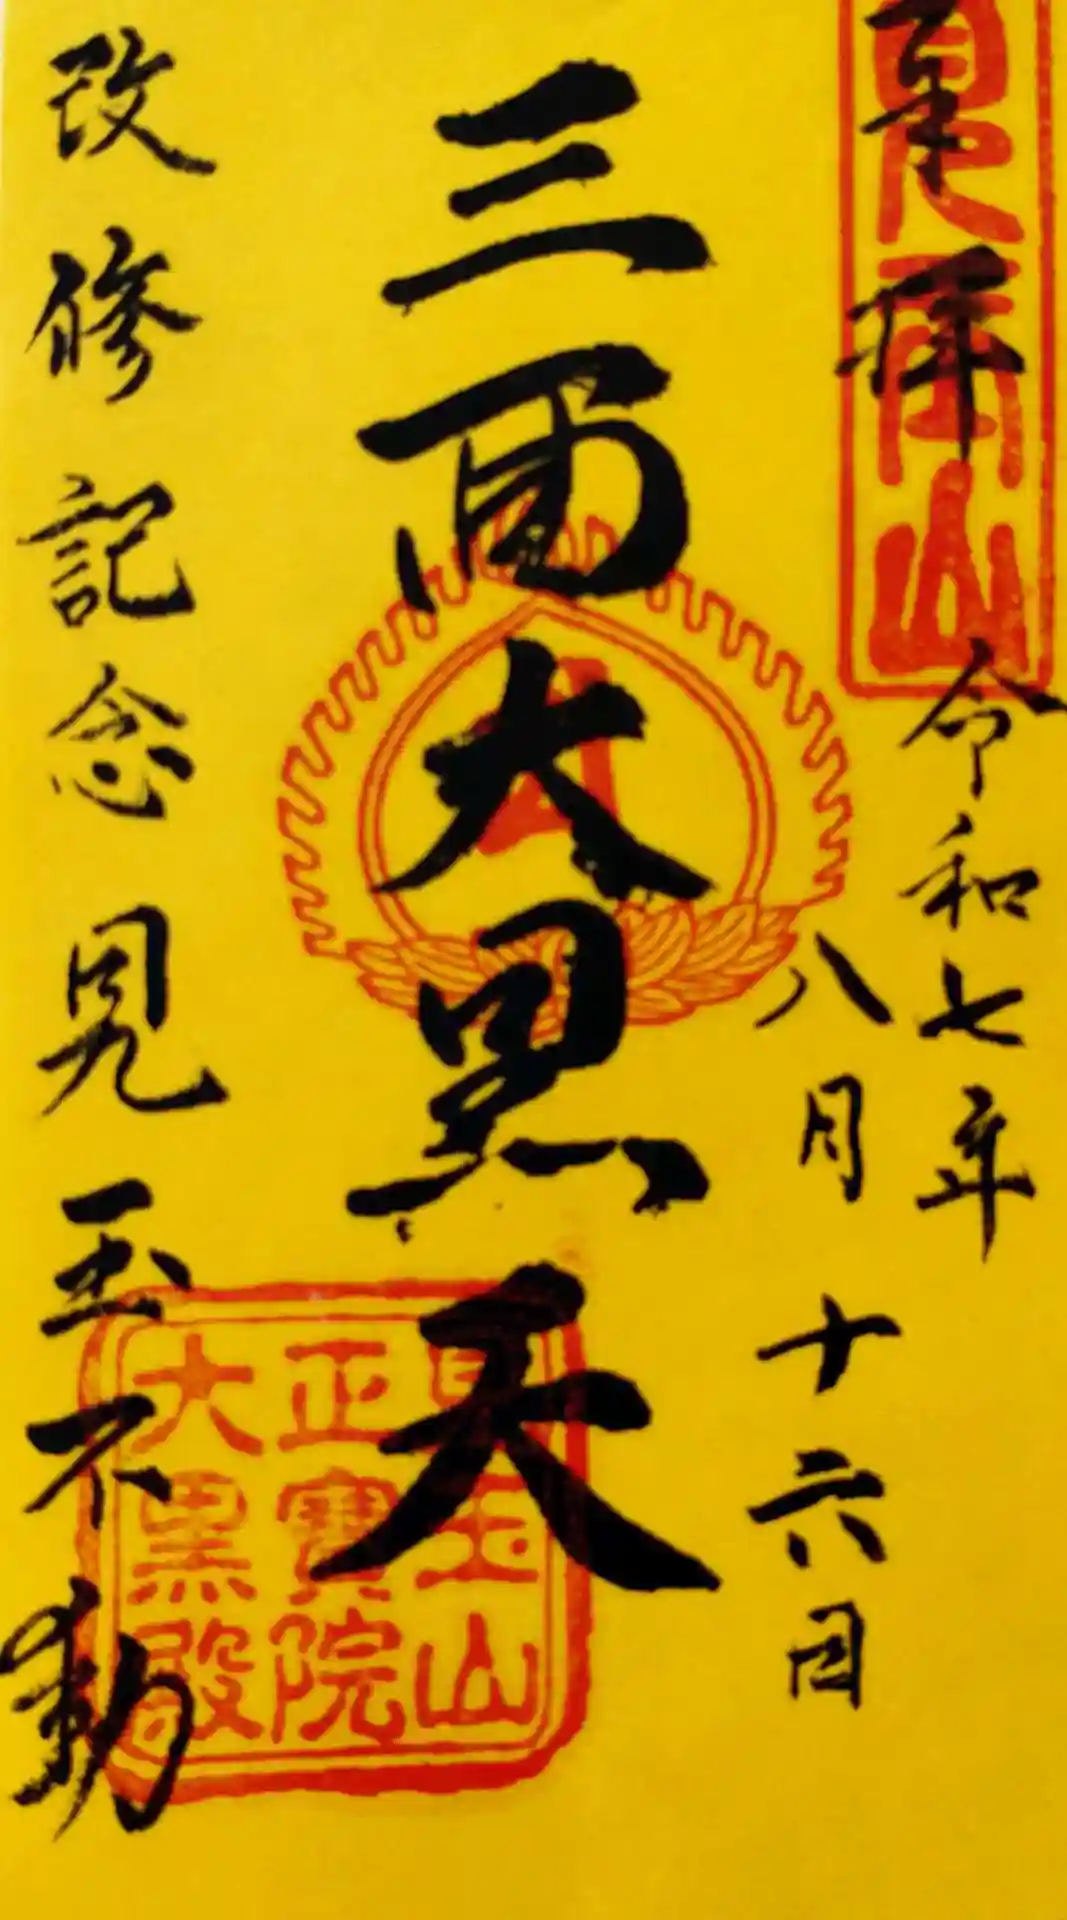 奉拝
見玉山
令和七年
八月十六日
三面大黒天
改修記念 見玉不動
見玉山
正寶院
大黒殿